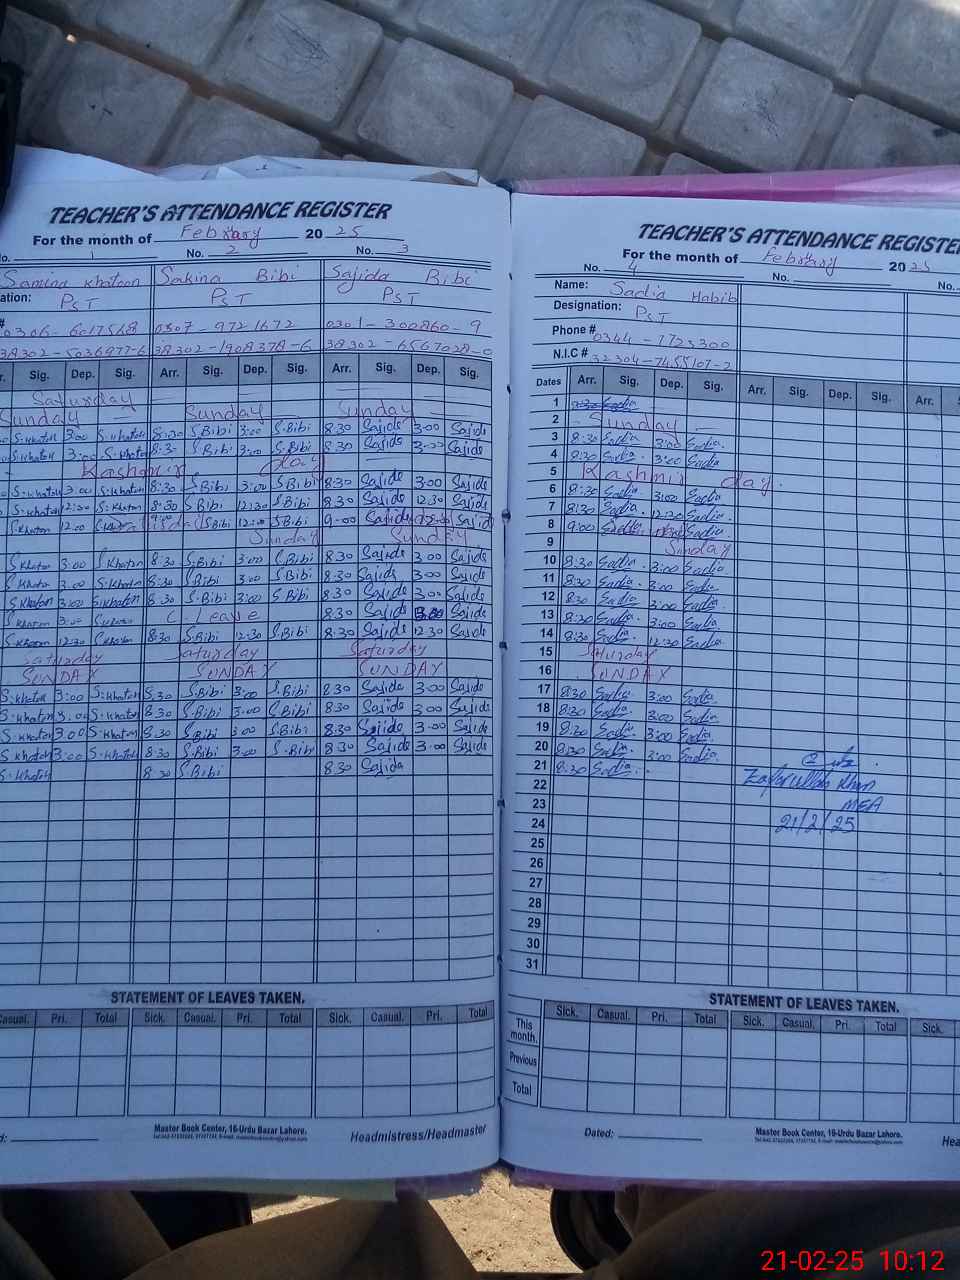 TEACHER'S ATTENDANCE REGISTER
For the month of February 2025
No. 1 No. 2 No. 3
Samina Khatoon Sakina Bibi Sajida Bibi
PST PST PST
0306-6017568 0307-9721672 0301-300860-9
38302-5036977-6 38302-1908378-6 38302-6567028-0
Sig. Dep. Sig. Arr. Sig. Dep. Sig. Arr. Sig. Dep. Sig.
Saturday
Sunday Sunday Sunday
S.Khaton 3:00 S.Khaton 8:30 S.Bibi 3:00 S.Bibi 8:30 Sajida 3:00 Sajida
S.Khaton 3:00 S.Khaton 8:3- S.Bibi 3:00 S.Bibi 8:30 Sajida 3:00 Sajida
Kashmir day
S.Khaton 3:00 S.Khaton 8:30 S.Bibi 3:00 S.Bibi 8:30 Sajida 3:00 Sajida
S.Khaton 12:30 S.Khaton 8:30 S.Bibi 12:30 S.Bibi 8:30 Sajida 12:30 Sajida
S.Khaton 12:00 9:00 S.Bibi 12:00 S.Bibi 9-00 Sajida Sajida
Sunday Sunday
S.Khaton 3:00 S.Khaton 8:30 S.Bibi 3:00 S.Bibi 8:30 Sajida 3:00 Sajida
S.Khaton 3:00 S.Khaton 8:30 S.Bibi 3:00 S.Bibi 8:30 Sajida 3:00 Sajida
S.Khaton 3:00 S.Khaton 8:30 S.Bibi 3:00 S.Bibi 8:30 Sajida 3:00 Sajida
S.Khaton 3:00 S.Khaton C Leave 8:30 Sajida 3:00 Sajida
S.Khaton 12:30 S.Khaton 8:30 S.Bibi 12:30 S.Bibi 8:30 Sajida 12:30 Sajida
Saturday Saturday Saturday
SUNDAY SUNDAY SUNDAY
S.Khaton 3:00 S.Khaton 8:30 S.Bibi 3:00 S.Bibi 8:30 Sajida 3:00 Sajida
S.Khaton 3:00 S.Khaton 8:30 S.Bibi 3:00 S.Bibi 8:30 Sajida 3:00 Sajida
S.Khaton 3:00 S.Khaton 8:30 S.Bibi 3:00 S.Bibi 8:30 Sajida 3:00 Sajida
S.Khaton 3:00 S.Khaton 8:30 S.Bibi 3:00 S.Bibi 8:30 Sajida 3:00 Sajida
S.Khaton 8:30 S.Bibi 8:30 Sajida
STATEMENT OF LEAVES TAKEN.
Casual. Pri. Total Sick. Casual. Pri. Total Sick. Casual. Pri. Total
Master Book Center, 16-Urdu Bazar Lahore.
Headmistress/Headmaster
TEACHER'S ATTENDANCE REGISTER
For the month of February 2025
No. 4 No. No.
Name: Sadia Habib
Designation: PST
Phone # 0344-7723300
N.I.C # 32304-7455107-2
Dates Arr. Sig. Dep. Sig. Arr. Sig. Dep. Sig. Arr.
1 8:30 Sadia
2 Sunday
3 8:30 Sadia 3:00 Sadia
4 8:30 Sadia 3:00 Sadia
5 Kashmir day.
6 8:30 Sadia 3:00 Sadia
7 8:30 Sadia 12:30 Sadia
8 9:00 Sadia Sadia
9 Sunday
10 8:30 Sadia 3:00 Sadia
11 8:30 Sadia 3:00 Sadia
12 8:30 Sadia 3:00 Sadia
13 8:30 Sadia 3:00 Sadia
14 8:30 Sadia 12:30 Sadia
15 Saturday
16 SUNDAY
17 8:30 Sadia 3:00 Sadia
18 8:30 Sadia 3:00 Sadia
19 8:30 Sadia 3:00 Sadia
20 8:30 Sadia 3:00 Sadia
21 8:30 Sadia
Zafarullah Khan
22
MEA
23
21/2/25
24
25
26
27
28
29
30
31
STATEMENT OF LEAVES TAKEN.
Sick. Casual. Pri. Total Sick. Casual. Pri. Total Sick.
This month.
Previous
Total
Dated:
Master Book Center, 16-Urdu Bazar Lahore.
21-02-25 10:12